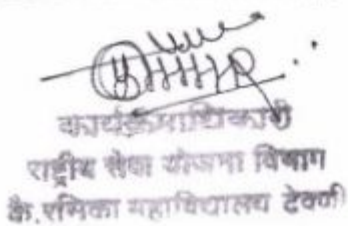 कार्यक्रमाधिकारी
राष्ट्रीय सेवा योजना विभाग
कै.रसिका महाविद्यालय देवणी